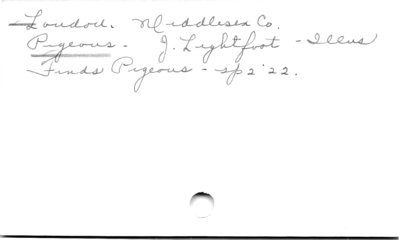 London. Middlesex Co.
Pigeons. J. Lightfoot - Illus
Finds Pigeons - sp 2 '22.